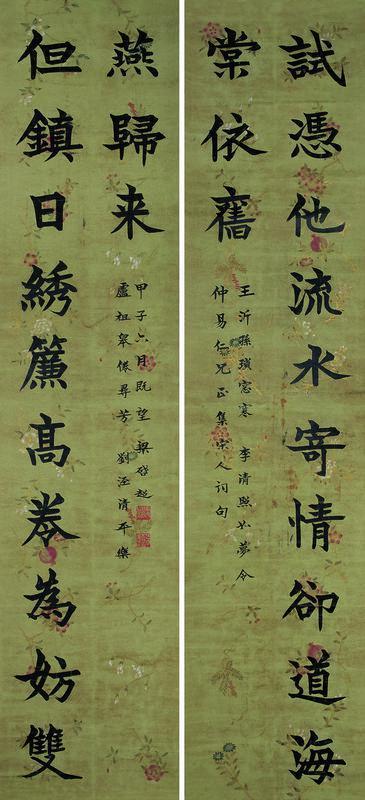 試憑他流水寄情卻道海
棠依舊
王沂孫瑣窗寒 李清照如夢令
仲易仁兄正集宋人詞句
但鎮日綉簾高卷為妨雙
燕歸来
盧祖皋倦尋芳 劉涇清平樂
甲子六月既望 梁啟超